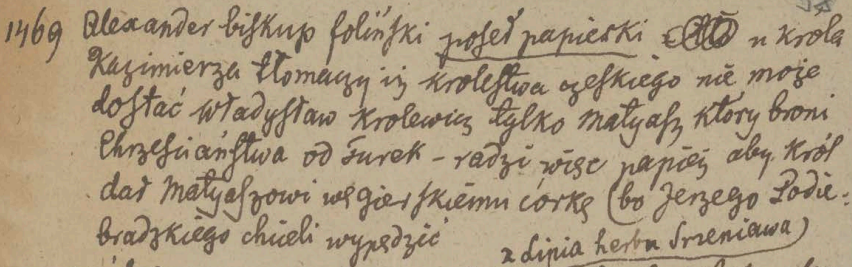 1469 Alexander biskup foliński poseł papieski u króla
Kazimierza tłomaczy iż królestwa czeskiego nie może
dostać Władysław królewicz tylko Matyasz który broni
Chrześciaństwa od Turek – radzi więc papież aby król
dał Matyaszowi węgierskiemu córkę (bo Jerzego Podie-
bradzkiego chcieli wypędzić
z Lipia herbu Srzeniawa)